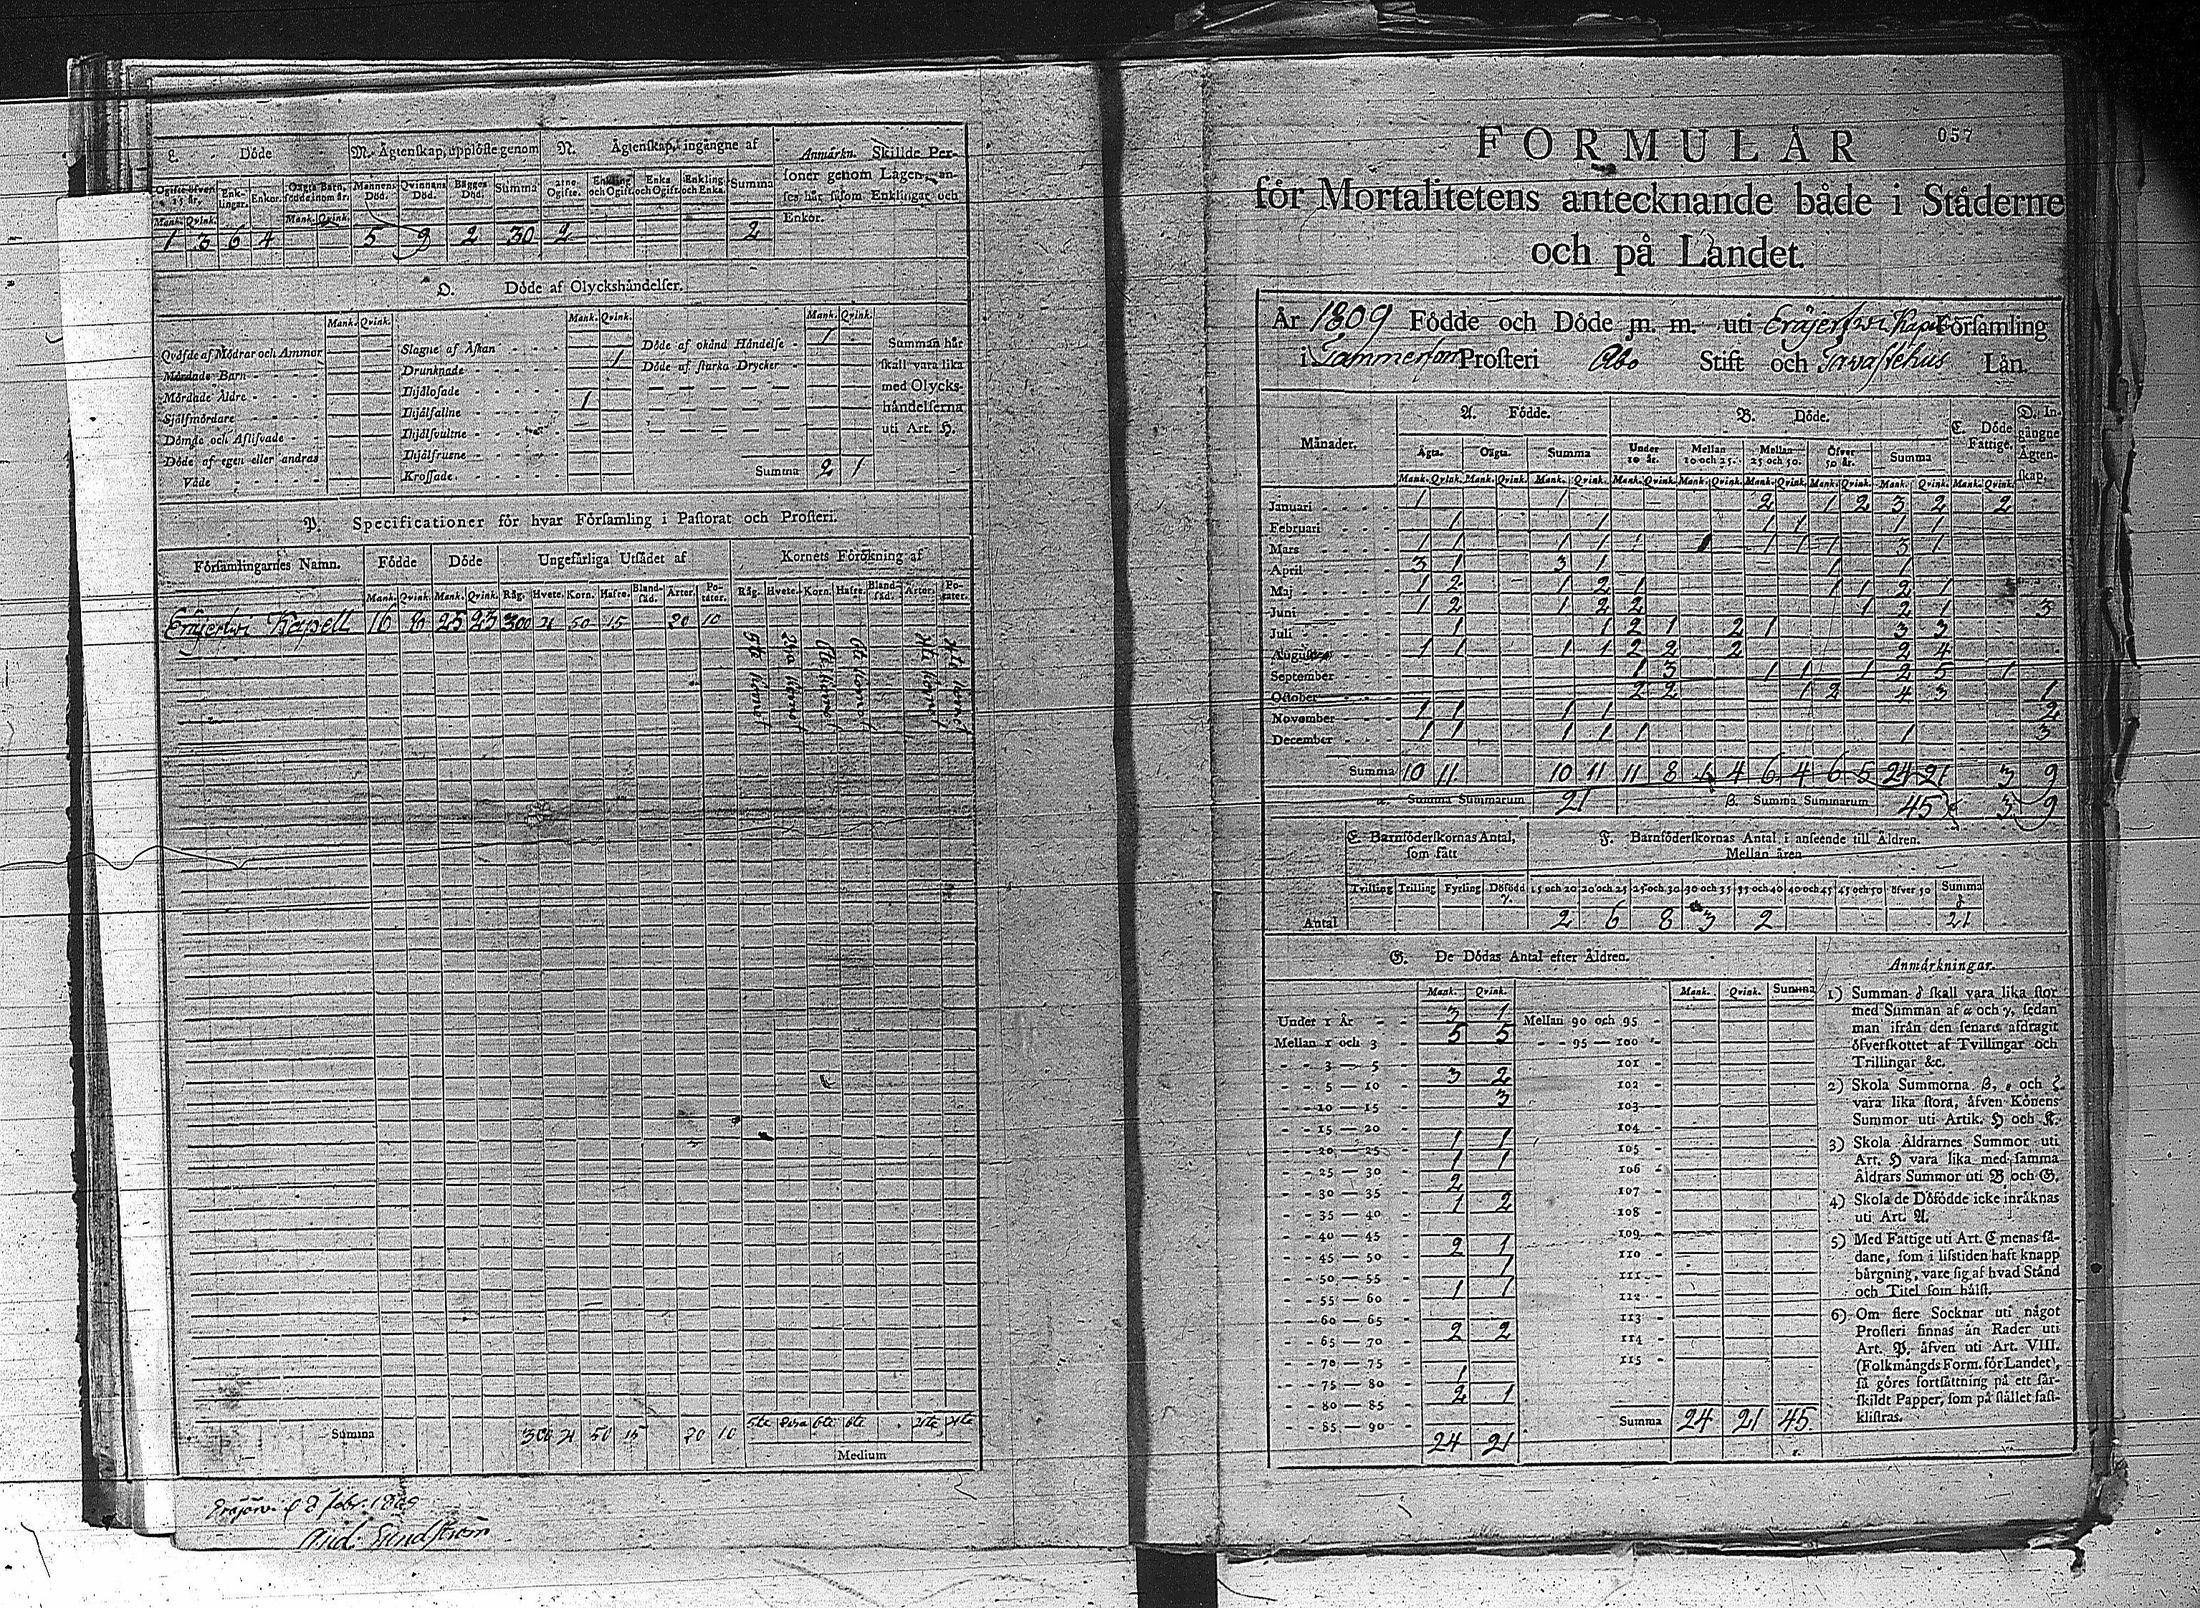 L. Döde
M. Ägtenskap, upplöste genom
N. Ägtenskap, ingångne af
Anmärkn. Skillde Per-
soner genom Lagen, an-
ses här såsom Enklingar och
Enkor.
Mannens Död. Qvinnans Död. Bägges Död. Summa
Enkling och Ogift. Enka och Ogift. Enkling och Enka. Summa
1 3 6 4 5 9 2 30 2 2
O. Döde af Olyckshändelser.
Mank. Qvink. Mank. Qvink. Mank. Qvink.
Qväfde af Mödrar och Ammor
Mördade Barn
Mördade Äldre
Självmördare
Dömde och Aflifvade
Döde af egen eller andras
Våde
Slagne af Åskan
Drunknade 1
Ihjälosade
Ihjälfallne 1
Ihjälsvultne
Ihjälfrusne
Krossade
Döde af okänd Händelse 1
Döde af starka Drycker
Summa 2 1
Summan här
skall vara lika
med Olycks-
händelserna
uti Art. H.
P. Specificationer för hvar Församling i Pastorat och Prosteri.
Församlingarnes Namn. Födde Döde Ungefärliga Utsädet af Kornets Förökning af
Mank. Qvink. Mank. Qvink. Råg. Hvete. Korn. Hafre. Bland-säd. Ärter. Po-täter. Råg. Hvete. Korn. Hafre. Bland-säd. Ärter. Po-täter.
Eräjerfwi Kapell 16 6 25 23 300 4 50 15 20 10
Summa 300 4 50 15 20 10
Medium
Eräjärvi d 8 Febr. 1809
And: Sundström
057
FORMULÄR
för Mortalitetens antecknande både i Städerne
och på Landet.
År 1809 Födde och Döde m. m. uti Eräjerfwi Kapell Församling
i Tammerfors Prosteri Åbo Stift och Tavastehus Län.
Månader. A. Födde. B. Döde. C. Döde Fattige. D. In-gångne Ägten-skap.
Ägta. Oägta. Summa Under 10 år. Mellan 10 och 25. Mellan 25 och 50. Öfver 50 år. Summa
Mank. Qvink. Mank. Qvink. Mank. Qvink. Mank. Qvink. Mank. Qvink. Mank. Qvink. Mank. Qvink. Mank. Qvink. Mank. Qvink.
Januari 1 1 2 1 2 3 2 2
Februari 1 1 1 1 1 1
Mars 1 1 1 1 1 1 1 1 3 1
April 3 1 3 1 1 1
Maj 1 2 1 2 1 1 1 2 1
Juni 1 2 1 2 2 1 2 1 3
Juli 1 1 2 1 2 1 3 3
Augusti 1 1 1 1 2 2 2 2 4
September 1 3 1 1 1 2 5 1
October 2 2 1 2 4 3 1
November 1 1 1 1 2
December 1 1 1 1 1 1 3
Summa 10 11 10 11 11 8 1 4 6 4 6 5 24 21 3 9
α. Summa Summarum 21 β. Summa Summarum 45 3 9
E. Barnföderskornas Antal,
som fått
F. Barnföderskornas Antal i anseende till Åldren.
Mellan åren
Tvilling Trilling Fyrling Döfödd γ. 15 och 20 20 och 25 25 och 30 30 och 35 35 och 40 40 och 45 45 och 50 öfver 50 Summa δ
Antal 2 6 8 3 2 21
G. De Dödas Antal efter Åldren.
Mank. Qvink. Mank. Qvink. Summa
Under 1 År 3 1 Mellan 90 och 95
Mellan 1 och 3 5 5 95 — 100
3 — 5 101
5 — 10 3 2 102
10 — 15 3 103
15 — 20 104
20 — 25 1 1 105
25 — 30 1 1 106
30 — 35 2 107
35 — 40 1 2 108
40 — 45 109
45 — 50 2 1 110
50 — 55 1 111
55 — 60 1 1 112
60 — 65 113
65 — 70 2 2 114
70 — 75 115
75 — 80 1
80 — 85 2 1
85 — 90 Summa 24 21 45
24 21
Anmärkningar.
1) Summan δ skall vara lika stor
med Summan af α och γ, sedan
man ifrån den senare afdragit
öfverskottet af Tvillingar och
Trillingar &c.
2) Skola Summorna β, ε och ζ
vara lika stora, äfven Könens
Summor uti Artik. H och K.
3) Skola Åldrarnes Summor uti
Art. H vara lika med samma
Åldrars Summor uti B och G.
4) Skola de Döfödde icke inräknas
uti Art. A.
5) Med Fattige uti Art. C menas så-
dane, som i lifstiden haft knapp
bärgning, vare sig af hvad Stånd
och Titel som hälst.
6) Om flere Socknar uti något
Prosteri finnas än Rader uti
Art. P, äfven uti Art. VIII.
(Folkmängds Form. för Landet),
så göres fortsättning på ett sär-
skildt Papper, som på stället fast-
klistras.